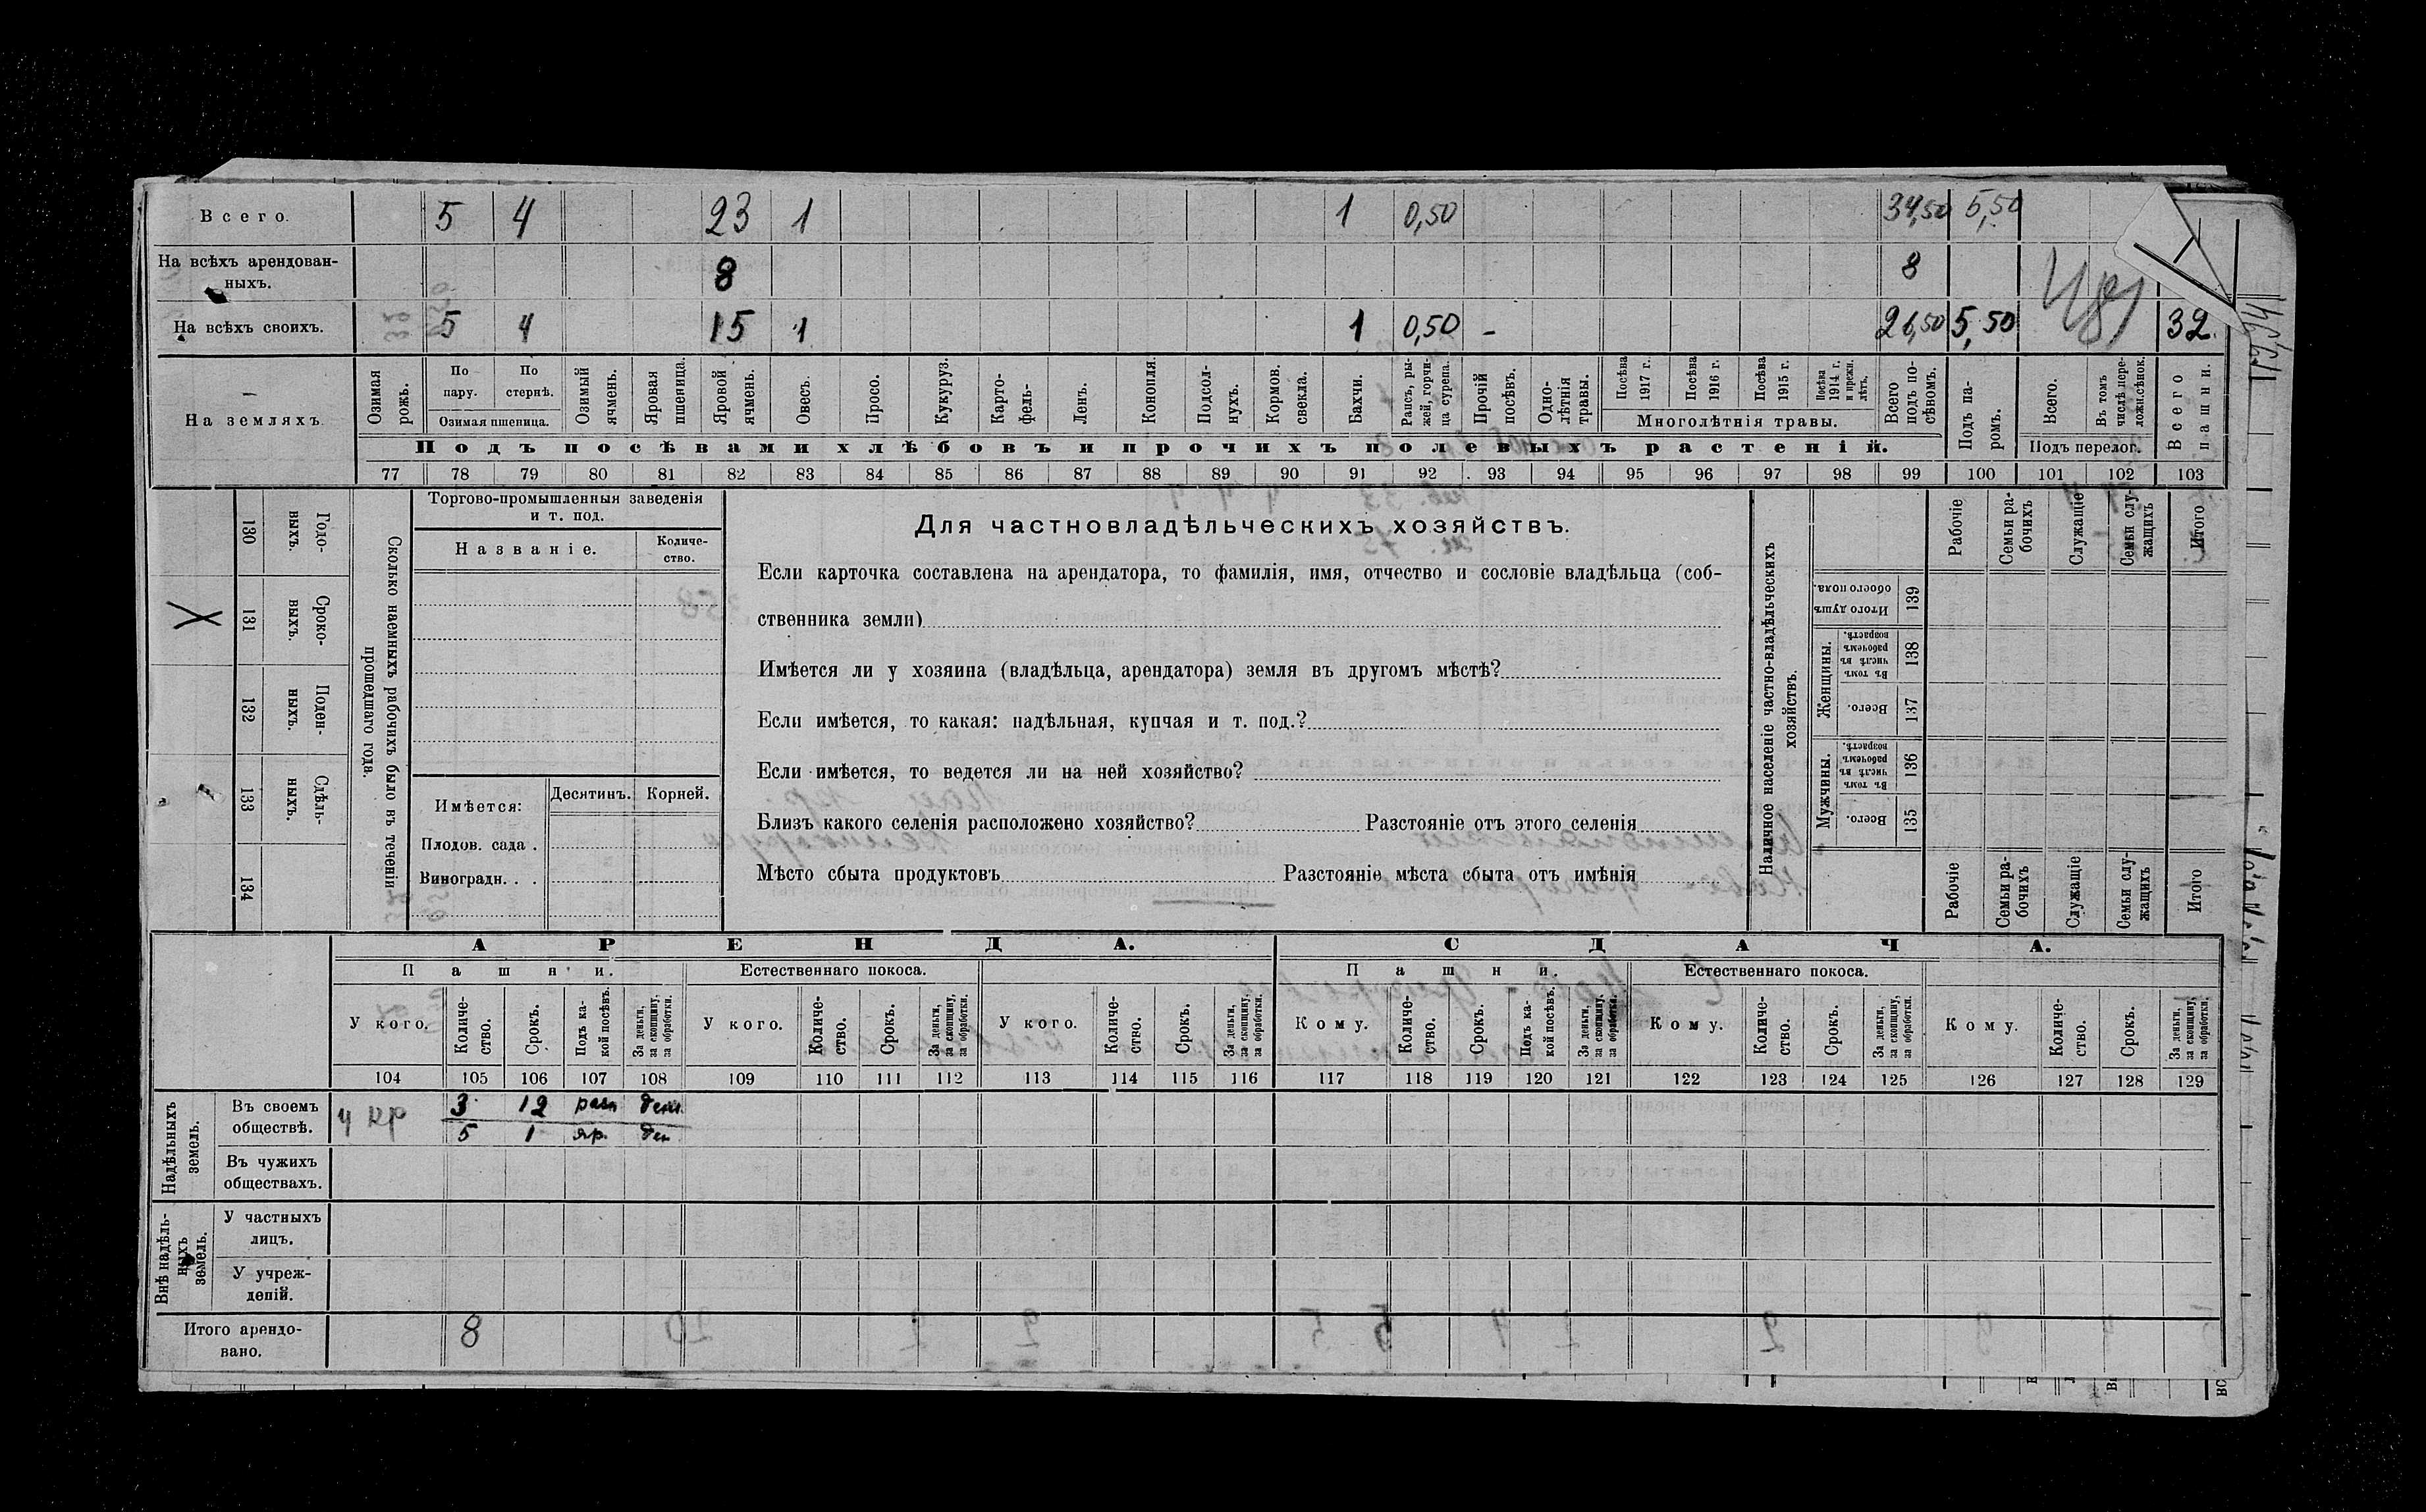 Всего. 5 4 23 1 1 0,50 34,50 5,50
На всѣхъ арендован-
ныхъ. 8 8
На всѣхъ своихъ. 5 4 15 1 1 0,50 - 26,50 5,50 32.
На земляхъ.
Озимая рожь.
По пару.
По стернѣ.
Озимая пшеница.
Озимый ячмень.
Яровая пшеница.
Яровой ячмень.
Овесъ.
Просо.
Кукуруз.
Карто-
фель.
Ленъ.
Конопля
Подсол-
нухъ.
Кормов. свекла.
Бахчи.
Рапсъ, ры-
жей, горчи-
ца сурепа.
Прочій посѣвъ.
Одно-
лѣтнія травы.
Посѣва 1917 г.
Посѣва 1916 г.
Посѣва 1915 г.
Посѣва 1914 г. и прежн. лѣтъ.
Многолѣтнія травы.
Всего подъ по-
сѣвомъ.
Подъ па-
ромъ.
Всего.
Въ томъ числѣ пере-
ложн. сѣнок.
Подъ перелог.
Всего пашни.
Подъ посѣвами хлѣбовъ и прочихъ полевыхъ растеній.
77 78 79 80 81 82 83 84 85 86 87 88 89 90 91 92 93 94 95 96 97 98 99 100 101 102 103
130 Годо-
выхъ.
131 Сроко-
выхъ.
132 Поден-
ныхъ.
133 Сдѣль-
ныхъ.
134
Сколько наемныхъ рабочихъ было въ теченіи
прошедшаго года.
Торгово-промышленныя заведенія
и т. под.
Названіе.
Количе-
ство.
Имѣется: Десятинъ. Корней.
Плодов. сада .
Виноградн. . .
Для частновладѣльческихъ хозяйствъ.
Если карточка составлена на арендатора, то фамилія, имя, отчество и сословіе владѣльца (соб-
ственника земли)
Имѣется ли у хозяина (владѣльца, арендатора) земля въ другомъ мѣстѣ?
Если имѣется, то какая: надѣльная, купчая и т. под.?
Если имѣется, то ведется ли на ней хозяйство?
Близъ какого селенія расположено хозяйство? Разстояніе отъ этого селенія
Мѣсто сбыта продуктовъ Разстояніе мѣста сбыта отъ имѣнія
Наличное населеніе частно-владѣльческихъ
хозяйствъ.
Рабочіе
Семьи ра-
бочихъ
Служащіе
Семьи слу-
жащихъ
Итого
Итого душъ обоего пола. 139
Женщины.
Въ томъ числѣ въ рабочемъ возрастѣ. 138
Всего. 137
Мужчины.
Въ томъ числѣ въ рабочемъ возрастѣ. 136
Всего. 135
Рабочіе
Семьи ра-
бочихъ
Служащіе
Семьи слу-
жащихъ
Итого
АРЕНДА. СДАЧА.
Пашни. Естественнаго покоса. Пашни. Естественнаго покоса.
У кого.
Количе-
ство.
Срокъ.
Подъ ка-
кой посѣвъ.
За деньги, за скопщину, за обработки.
У кого.
Количе-
ство.
Срокъ.
За деньги, за скопщину, за обработки.
У кого.
Количе-
ство.
Срокъ.
За деньги, за скопщину, за обработки.
Кому.
Количе-
ство.
Срокъ.
Подъ ка-
кой посѣвъ.
За деньги, за скопщину, за обработки.
Кому.
Количе-
ство.
Срокъ.
За деньги, за скопщину, за обработки.
Кому.
Количе-
ство.
Срокъ.
За деньги, за скопщину, за обработки.
104 105 106 107 108 109 110 111 112 113 114 115 116 117 118 119 120 121 122 123 124 125 126 127 128 129
Надѣльныхъ
земель.
Въ своемъ
обществѣ. у кр 3 12 разн ден.
5 1 яр. ден
Въ чужихъ
обществахъ.
Внѣ надѣль-
ныхъ
земель.
У частныхъ
лицъ.
У учреж-
деній.
Итого арендо-
вано. 8